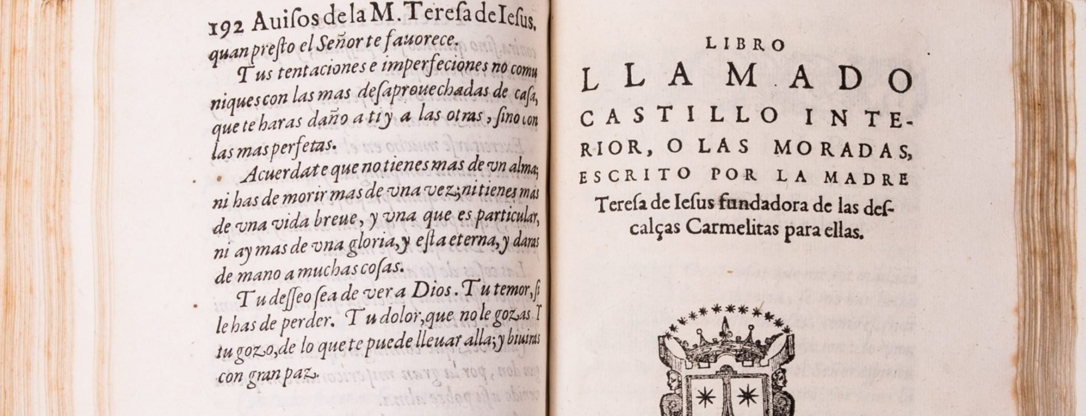 192 Auiſos de la M. Tereſa de Ieſus.
quan preſto el Señor te fauorece.
Tus tentaciones e imperfeciones no comu
niques con las mas deſaprouechadas de caſa,
que te haras daño a ti y a las otras, ſino con
las mas perfetas.
Acuerdate que no tienes mas de vn alma;
ni has de morir mas de vna vez; ni tienes mas
de vna vida breue, y vna que es particular,
ni ay mas de vna gloria, y eſta eterna, y daras
de mano a muchas coſas.
Tu deſſeo ſea de ver a Dios. Tu temor, ſi
le has de perder. Tu dolor, que no le gozas. Y
tu gozo, de lo que te puede lleuar alla; y biuiras
con gran paz.
LIBRO
LLAMADO
CASTILLO INTE-
RIOR, O LAS MORADAS,
ESCRITO POR LA MADRE
Tereſa de Ieſus fundadora de las deſ-
calças Carmelitas para ellas.